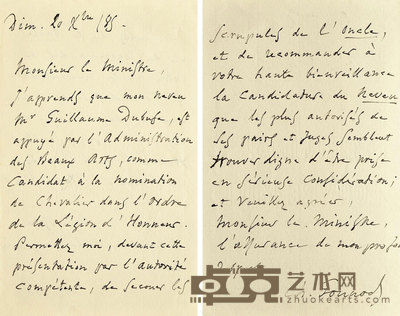 Dim. 20 Xbre /85.
Monsieur le Ministre,
J'apprends que mon neveu
Mr Guillaume Dubufe, est
appuyé par l'Administration
des Beaux Arts, comme
Candidat à la nomination
de Chevalier dans l'ordre
de la Légion d'Honneur.
Permettez moi, devant cette
présentation par l'autorité
compétente, de secouer les
scrupules de l'Oncle,
et de recommander à
votre haute bienveillance
la Candidature du Neveu
que les plus autorisés de
ses pairs et Juges semblent
trouver digne d'être prise
en sérieuse Considération;
et veuillez agréer,
Monsieur le Ministre,
l'assurance de mon profond
卓克艺术网
zhuokearts.com